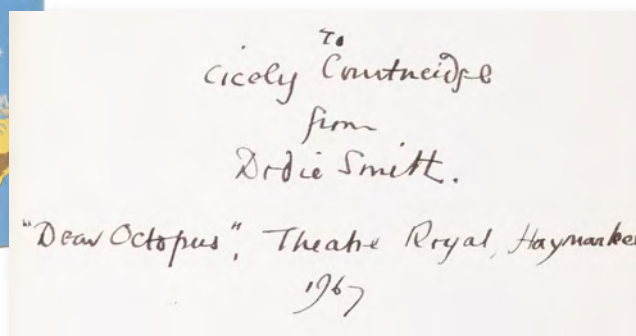 To
Cicely Courtneidge
from
Dodie Smith.
"Dear Octopus", Theatre Royal, Haymarket
1967